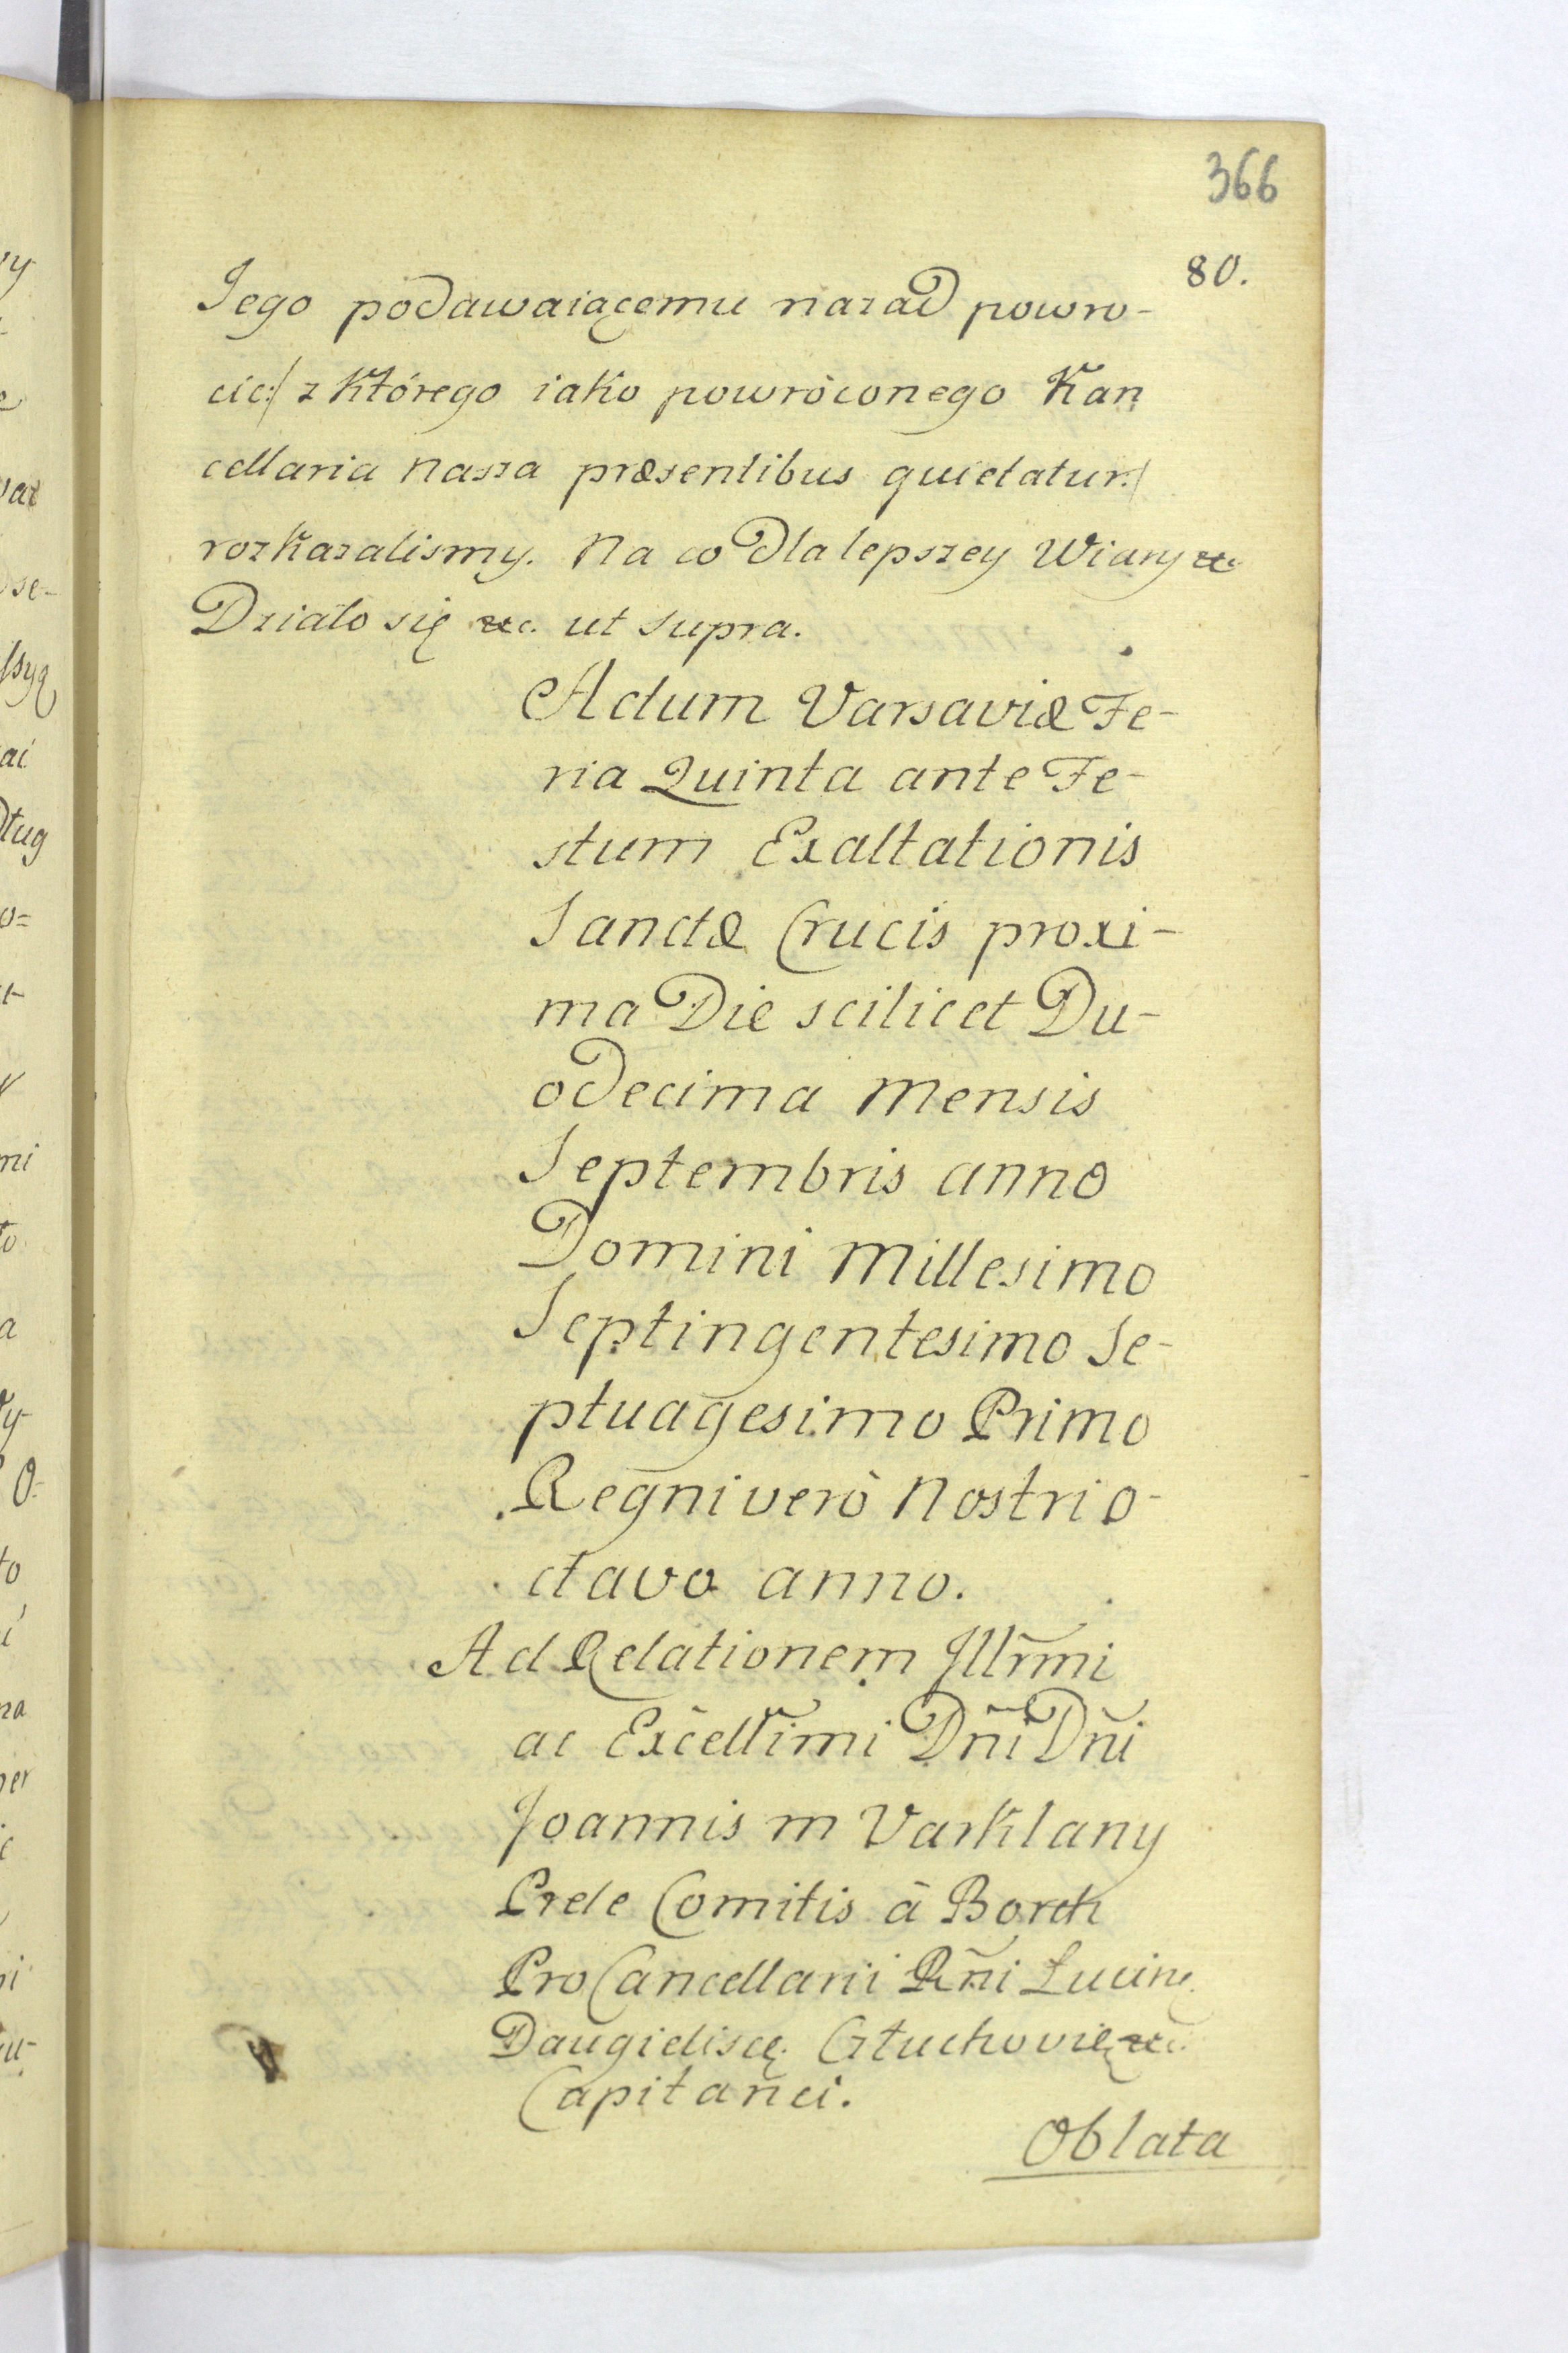 366
80.
Jego podawaiącemu nazad powro-
cic:/ z którego iako powróconego Kan
cellaria nasza præsentibus quietatur:/
rozkazalismy. Na co dla lepszey Wiary &c.
Działo się &c. ut supra.
Actum Varsaviæ Fe-
ria Quinta ante Fe-
stum Exaltationis
Sanctæ Crucis proxi-
ma Die scilicet Du-
odecima Mensis
Septembris anno
Domini Millesimo
Septingentesimo Se-
ptuagesimo Primo
Regni verò Nostri o-
ctavo anno.
Ad Relationem Jllr̃mi
ac Excell̃imi Dñi Dñi
Joannis in Varklany
Prele Comitis â Borch
Pro Cancellarii Rñi Lucinę
Daugieliscę Głuchovię &c.
Capitanei.
Oblata